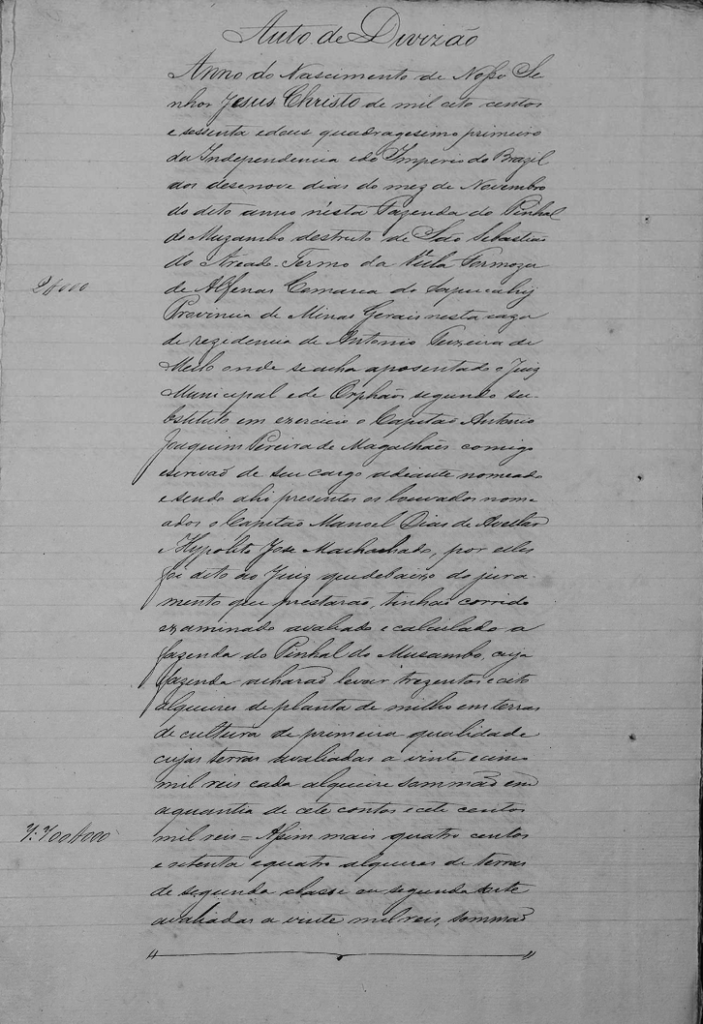 Auto de Divizão
Anno do Nascimento de Nosso Se
nhor Jesus Christo de mil oito centos
e sessenta e dous quadragesimo primeiro
da Independencia e do Imperio do Brazil
aos desenove dias do mez de Novembro
do dito anno n'esta Fazenda do Pinhal
do Muzambo destricto de São Sebastião
do Areado Termo da Villa Formoza
2$000
de Alfenas Comarca do Sapucahy
Provincia de Minas Gerais nesta caza
de rezedencia de Antonio Teixeira de
Mello onde se acha aposentado o Juiz
Municipal e de Orphãos segundo su-
bstituto em exercicio o Capitão Antonio
Joaquim Pereira de Magalhães comigo
escrivaõ de seu cargo adiante nomeado
e sendo ahi presentes os louvados nome-
ados o Capitão Manoel Dias de
e Hypolito Jose Machachado, por elles
foi dito ao Juiz que debaixo do jura-
mento que prestaraõ, tinhaõ corrido
examinado avaliado e calculado a
fazenda do Pinhal do Musambo, cuja
fazenda acharaõ levar trezentos e oito
alqueires de planta de milho em terras
de cultura de primeira qualidade
cujas terras avaliadas a vinte e cinco
mil reis cada alqueire sommaõ em
a quantia de cete contos e cete centos
7:700$000
mil reis = Assim mais quatro centos
e setenta e quatro alqueires de terras
de segunda classe ou segunda sorte
avaliadas a vinte mil reis, sommaõ